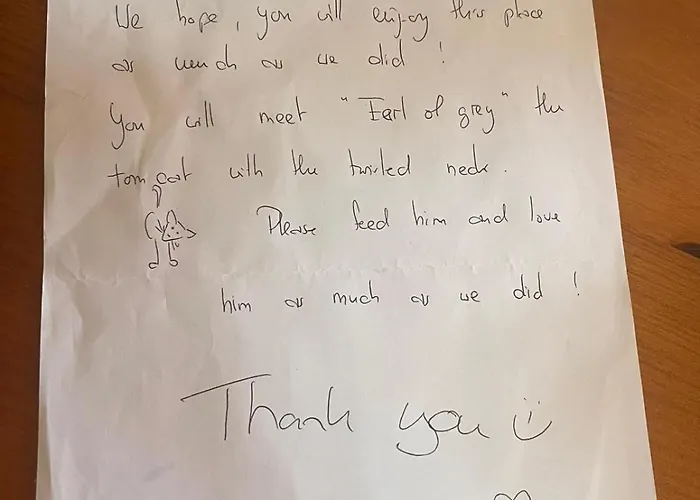 We hope, you will enjoy this place
as much as we did !
You will meet "Earl of grey" the
tom cat with the twisted neck.
Please feed him and love
him as much as we did !
Thank you :)